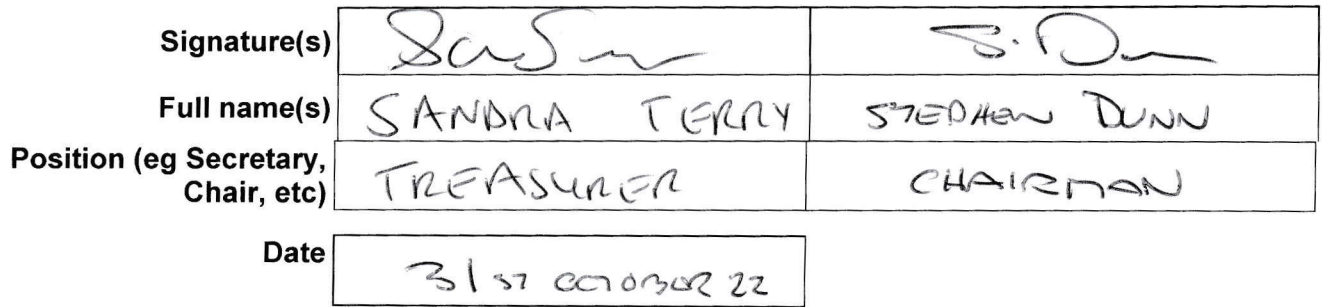 Signature(s) S. Dunn
Full name(s) SANDRA TERRY STEPHEN DUNN
Position (eg Secretary,
Chair, etc) TREASURER CHAIRMAN
Date 31ST OCTOBER 22